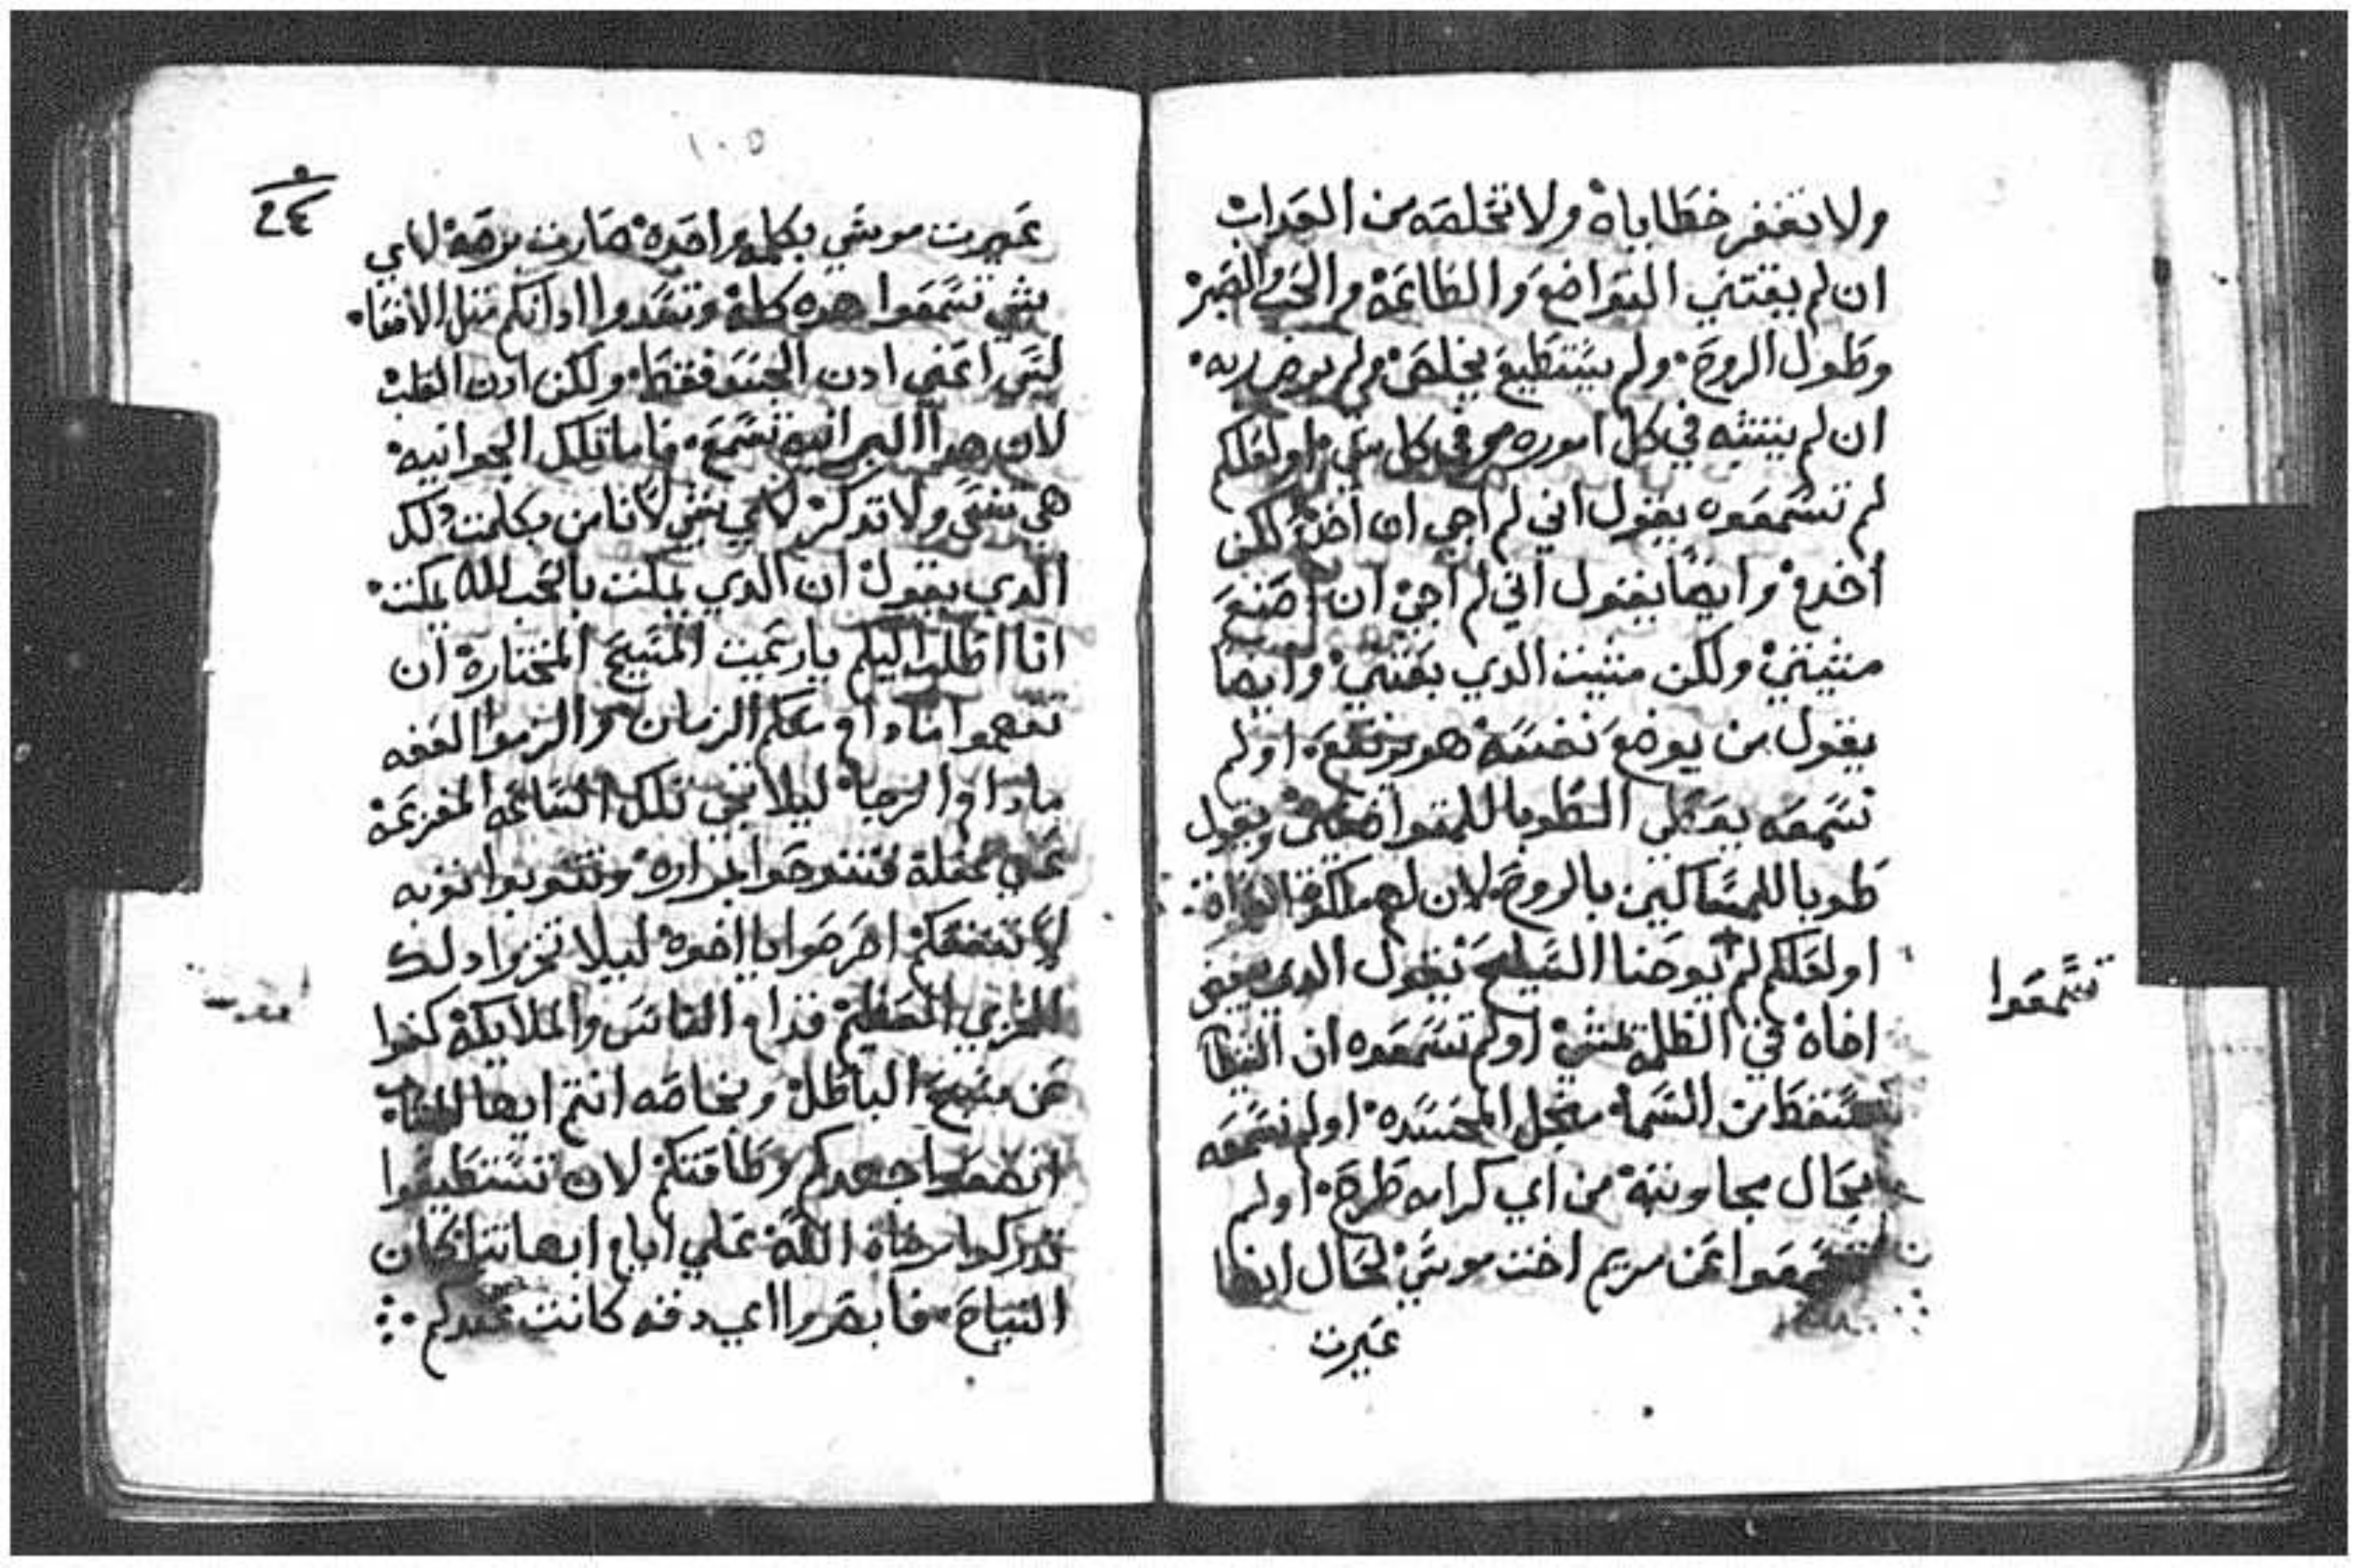 ولا تغفر خطاياه ولا تخلصه من العداب
ان لم يقتني التواضع والطاعة والحب والصبر
وطول الروح. ولم يستطيع يخلص ولم يرضي ربه.
ان لم يتشبه في كل اموره في كل شي او لعلكم
لم تسمعوه يقول اني لم اجي ان اخدم لكن
اخدم وايضا يقول اني لم اجي ان اصنع
مشيتي ولكن مشيت الدي بعتني وايضا
يقول من يوضع نفسه هو يرتفع. اولم
تسمعه يعطي الطوبا للمتواضعين ويقول
طوبا للمساكين بالروح لان لهم ملكوت
او لعلكم لم يوحنا السليح يقول الدي يبغض
اخاه في الظلمة يمشي اولم تسمعوه ان الشيطا
سقط من السما من اجل الحسد. اولم تسمعه
بحال من اي كرامه طرح. اولم
تسمعوا عن مريم اخت موسي بحال انها
عيرت
تسمعوا
١٠٥
٢٤
عيرت موسي بكلمه واحده صارت برصة لاي
شي تسمعوا هده كلها وتسدوا ادانكم متل الافعا.
لست اعني ادن الجسد فقط. ولكن ادن القلب
لان هدا البرانيه تسمع. فاما تلك الجوانيه
هي تنسي ولا تدكر لاي شي لانا من بكلمت دلك
الدي يقول ان الدي يمكت بالحب لله يمكت.
انا اطلب اليكم يا رعيت المسيح المختارة ان
تفهموا ما دام معكم الزمان والزموا العفه
ما دام الرجا ليلا تجي تلك الساعه المفزعة
علي غفلة فتنوحوا بمراره وتتوبوا توبه
لا تنفعكم احرصوا يا اخوه ليلا تخزوا دلك
الخزي العظيم قدام الناس والملايكة كفوا
عن سبح الباطل وبخاصه انتم ايها الشباب
اصنعوا جهدكم وطاقتكم لان تستطيعوا
تدركوا رضاة الله علي ايام ابهاتنا كان
السياح فابصروا اي دفه كانت عندكم